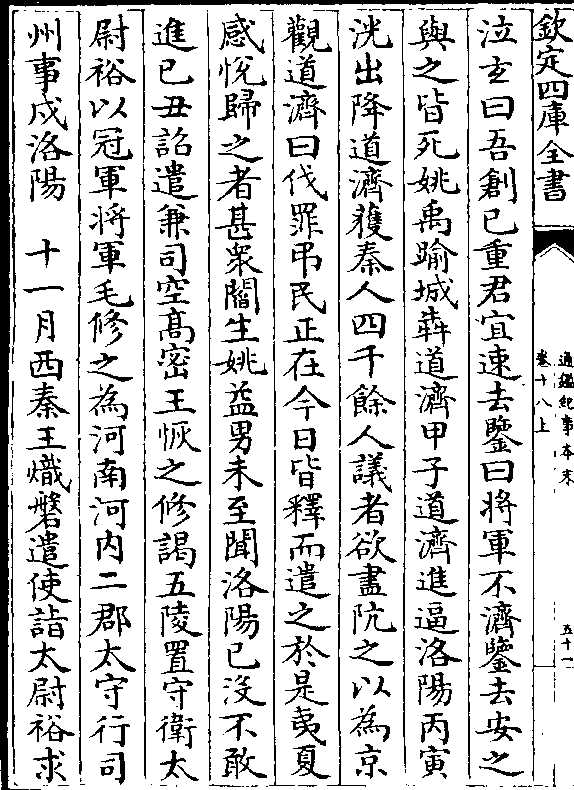 欽定四庫全書
通鑑紀事本末
卷十八上
五十一
泣玄曰吾創已重君宜速去鑒曰將軍不濟鑒去安之
與之皆死姚禹踰城犇道濟甲子道濟進逼洛陽丙寅
洸出降道濟獲秦人四千餘人議者欲盡阬之以為京
觀道濟曰伐罪弔民正在今日皆釋而遣之於是夷夏
感悅歸之者甚衆閻生姚益男未至聞洛陽已沒不敢
進已丑詔遣兼司空高密王恢之修謁五陵置守衛太
尉裕以冠軍將軍毛修之為河南河内二郡太守行司
州事戍洛陽　十一月西秦王熾磐遣使詣太尉裕求